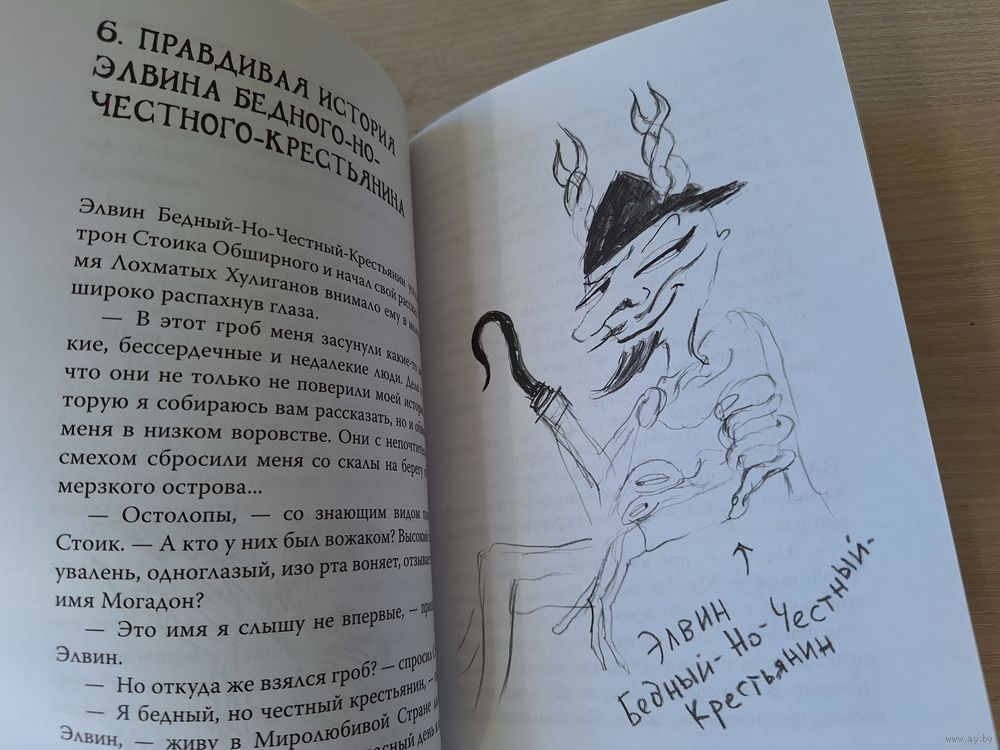 6. ПРАВДИВАЯ ИСТОРИЯ
ЭЛВИНА БЕДНОГО-НО-
ЧЕСТНОГО-КРЕСТЬЯНИНА
Элвин Бедный-Но-Честный-Крестьянин
трон Стоика Обширного и начал свой
мя Лохматых Хулиганов внимало ему в
широко распахнув глаза.
— В этот гроб меня засунули какие-то
кие, бессердечные и недалекие люди. Дело
что они не только не поверили моей
торую я собираюсь вам рассказать, но и
меня в низком воровстве. Они с
смехом сбросили меня со скалы на берегу
мерзкого острова...
— Остолопы, — со знающим видом
Стоик. — А кто у них был вожаком? Высокий
увалень, одноглазый, изо рта воняет,
имя Могадон?
— Это имя я слышу не впервые, —
Элвин.
— Но откуда же взялся гроб? — спросил
— Я бедный, но честный крестьянин, —
Элвин, — живу в Миролюбивой Стране
Элвин
Бедный-Но-Честный-
Крестьянин
www.ay.by